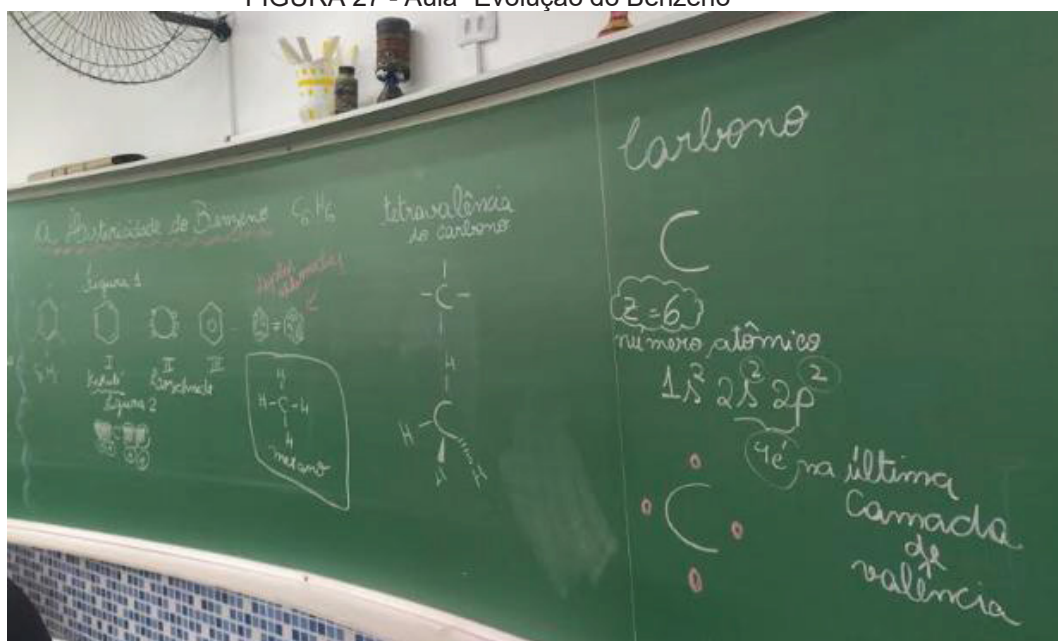 FIGURA 27 - Aula "Evolução do Benzeno"
A Historicidade do Benzeno C6H6
Figura 1
I II III
Kekulé Loschmidt
Figura 2
H
H-C-H
H
metano
tetravalência
do carbono
-C-
H
H-C
H H
Carbono
C
Z=6
número atômico
1s² 2s² 2p²
4é na última
Camada
de
valência
C